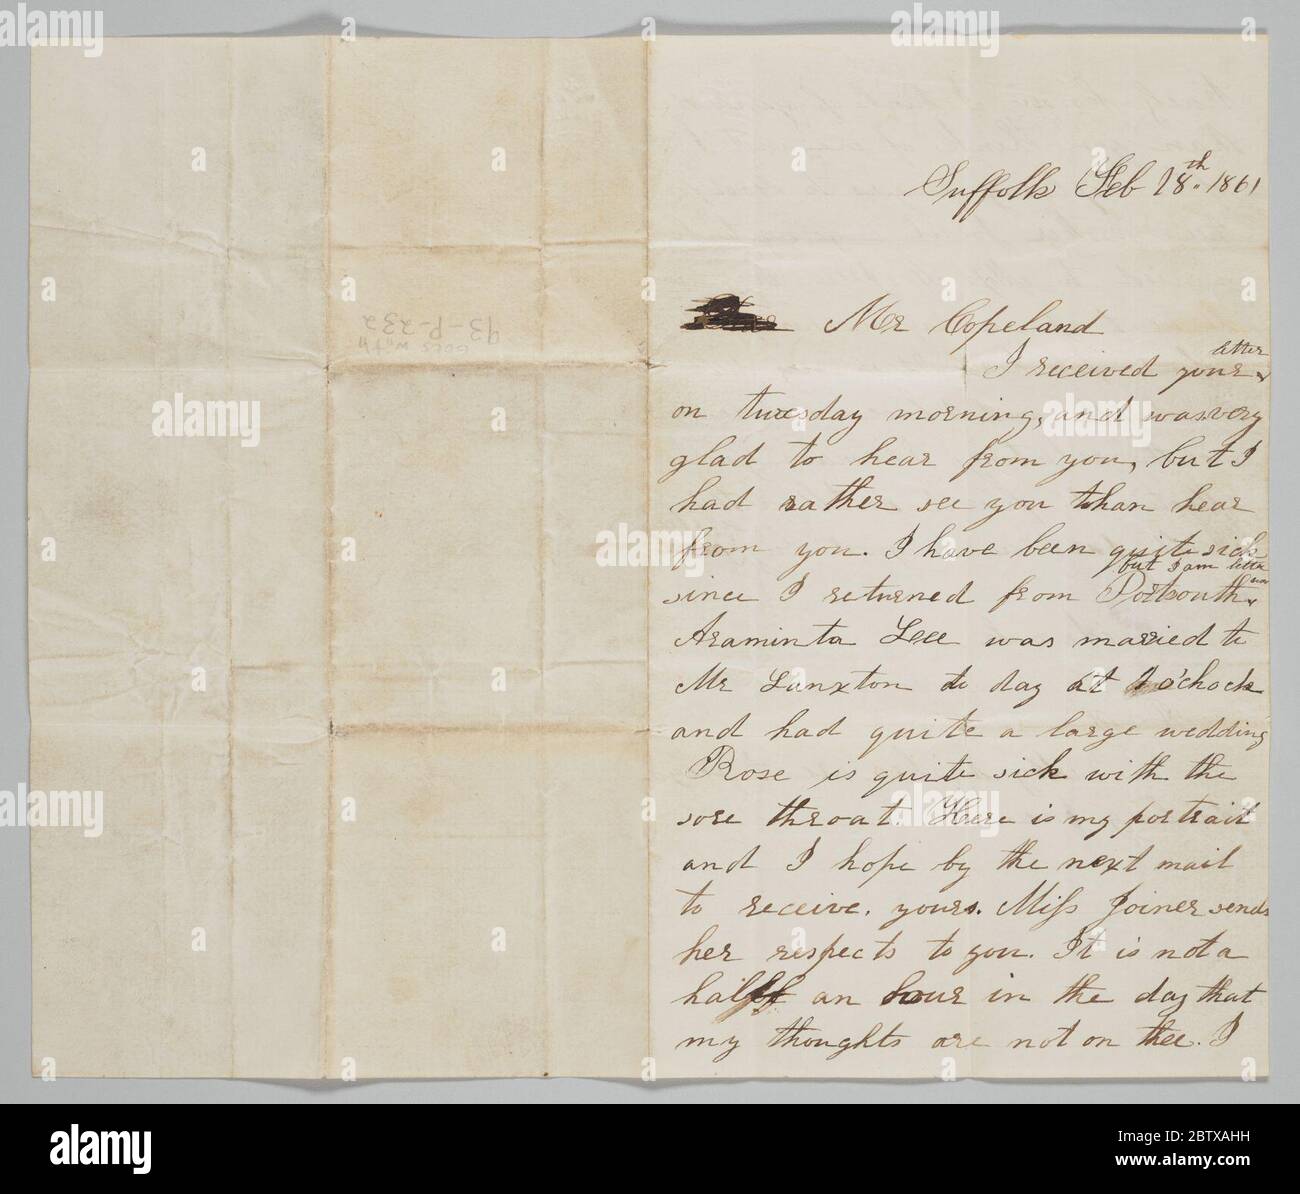 Suffolk Feb 18th. 1861
Mr Copeland
I received your letter
on tuesday morning, and was very
glad to hear from you, but I
had rather see you than hear
from you. I have been quite sick
since I returned from Portsouth but I am better now
Araminta Lee was married to
Mr Lanxton to day at 1 o'chock
and had quite a large wedding
Rose is quite sick with the
sore throat. Here is my portrait
and I hope by the next mail
to receive. yours. Miss Joiner sends
her respects to you. It is not a
half an hour in the day that
my thoughts are not on thee. I
goes with
93-P-232
alamy
Image ID: 2BTXAHH
www.alamy.com